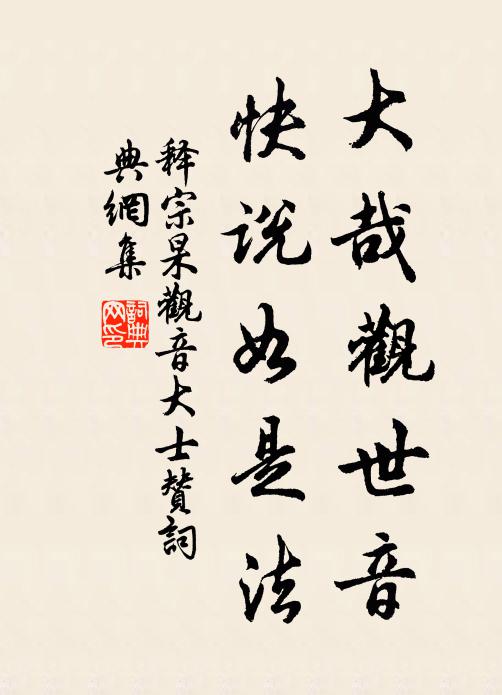 大哉觀世音
快说如是法
释宗杲觀音大士贊詞
典網集
詞典網印